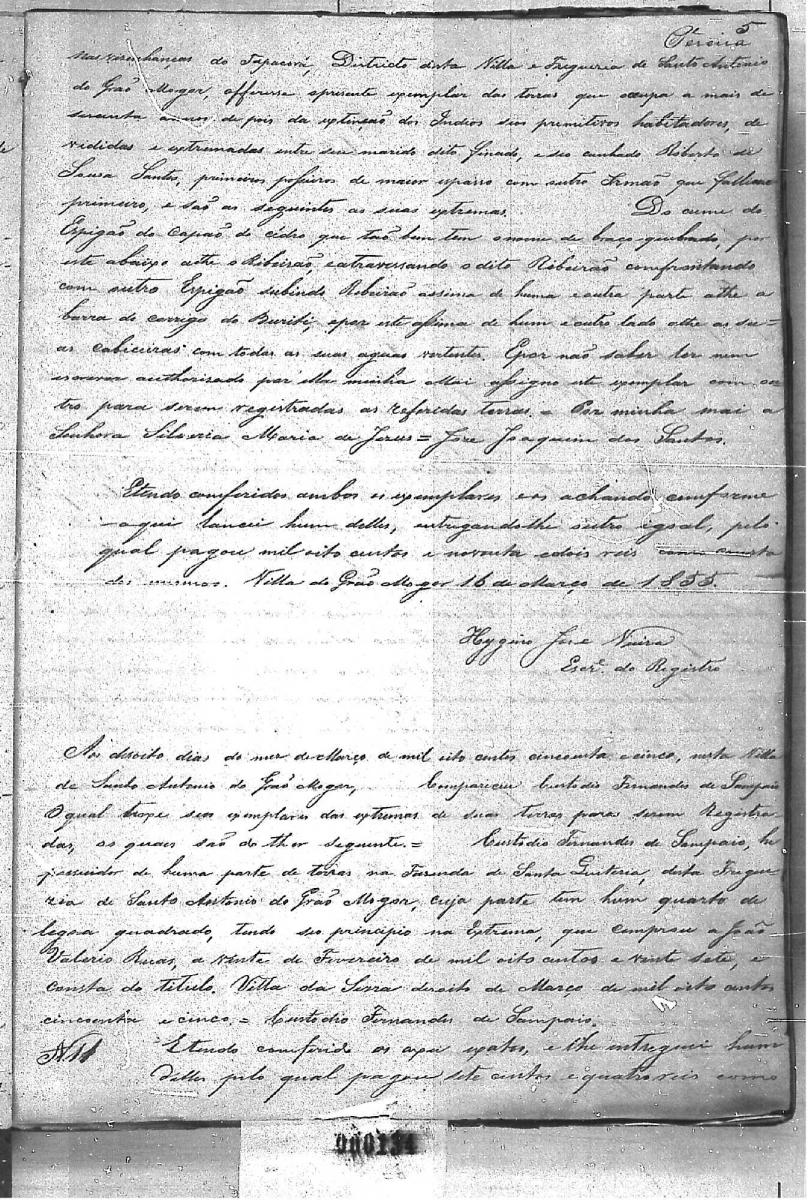 5
Pereira
nas visinhanças do Tapacorá, Districto desta Villa e Freguezia de Santo Antonio
do Grão Mogor, offeresse apresente exemplar das terras que occupa a mais de
secenta annos de pois da extinção dos Indios seos primitivos habitadores, de
vididas e extremadas entre seu marido dito finado, e seo cunhado Roberto de
Sousa Santos, primeiros posseiros de maior espasso com outro Irmão que falleceo
primeiro, e são as seguintes as suas extremas. Do cume do
Espigão do Capão do cédro que tão bem tem o nome de braço-quebrado, por
este abaixo athe o Ribeirão, eatravessando odito Ribeirão comfrontando
com outro Espigão subindo Ribeirão assima de huma eoutra parte athe a
barra do corrigo do Buriti, epor este assima de hum eoutro lado athe as su=
as cabiceiras com todas as suas aguas vertentes. Epor não saber ler nem
escrever authorisado por ella minha Mai assigno este exemplar com ou
tro para serem registradas as referidas terras. e Por minha mai a
Senhora Silveria Maria de Jesus = Jose Joaquim dos Santos.
Etendo comferidos ambos os exemplares eos achando comforme
-aqui lancei hum delles, entregandolhe outro igoal, pelo
qual pagou mil oito centos e noventa edois reis
dos mesmos. Villa do Grão Mogor 16 de Março de 1855.
Hygino Jose Vieira
Escrᵐ. do Registro
Aos desoito dias do mez de Março de mil oito centos cincoenta e cinco, nesta Villa
de Santo Antonio do Grão Mogor, Compareceu Custodio Fernandes de Sampaio
O qual trope seos exemplares das extremas de suas terras para serem Registra
das, os quaes são do thor seguinte. = Custodio Fernandes de Sampaio, he
possuidor de huma parte de terras na Fazenda de Santa Quiteria, desta Fregue
zia de Santo Antonio do Grão Mogor, cuja parte tem hum quarto de
legoa quadrado, tendo seo principio na Extrema, que comprou a João
Valerio Ruas, a vinte de Fevereiro de mil oito centos e vinte sete, e
consta do titulo. Villa da Serra desoito de Março de mil oito centos
cincoenta e cinco. = Custodio Fernandes de Sampaio.
N11 Etendo comferido os axei exatos, e lhe entreguei hum
delles pelo qual pagou sete centos e quatro reis como
000134